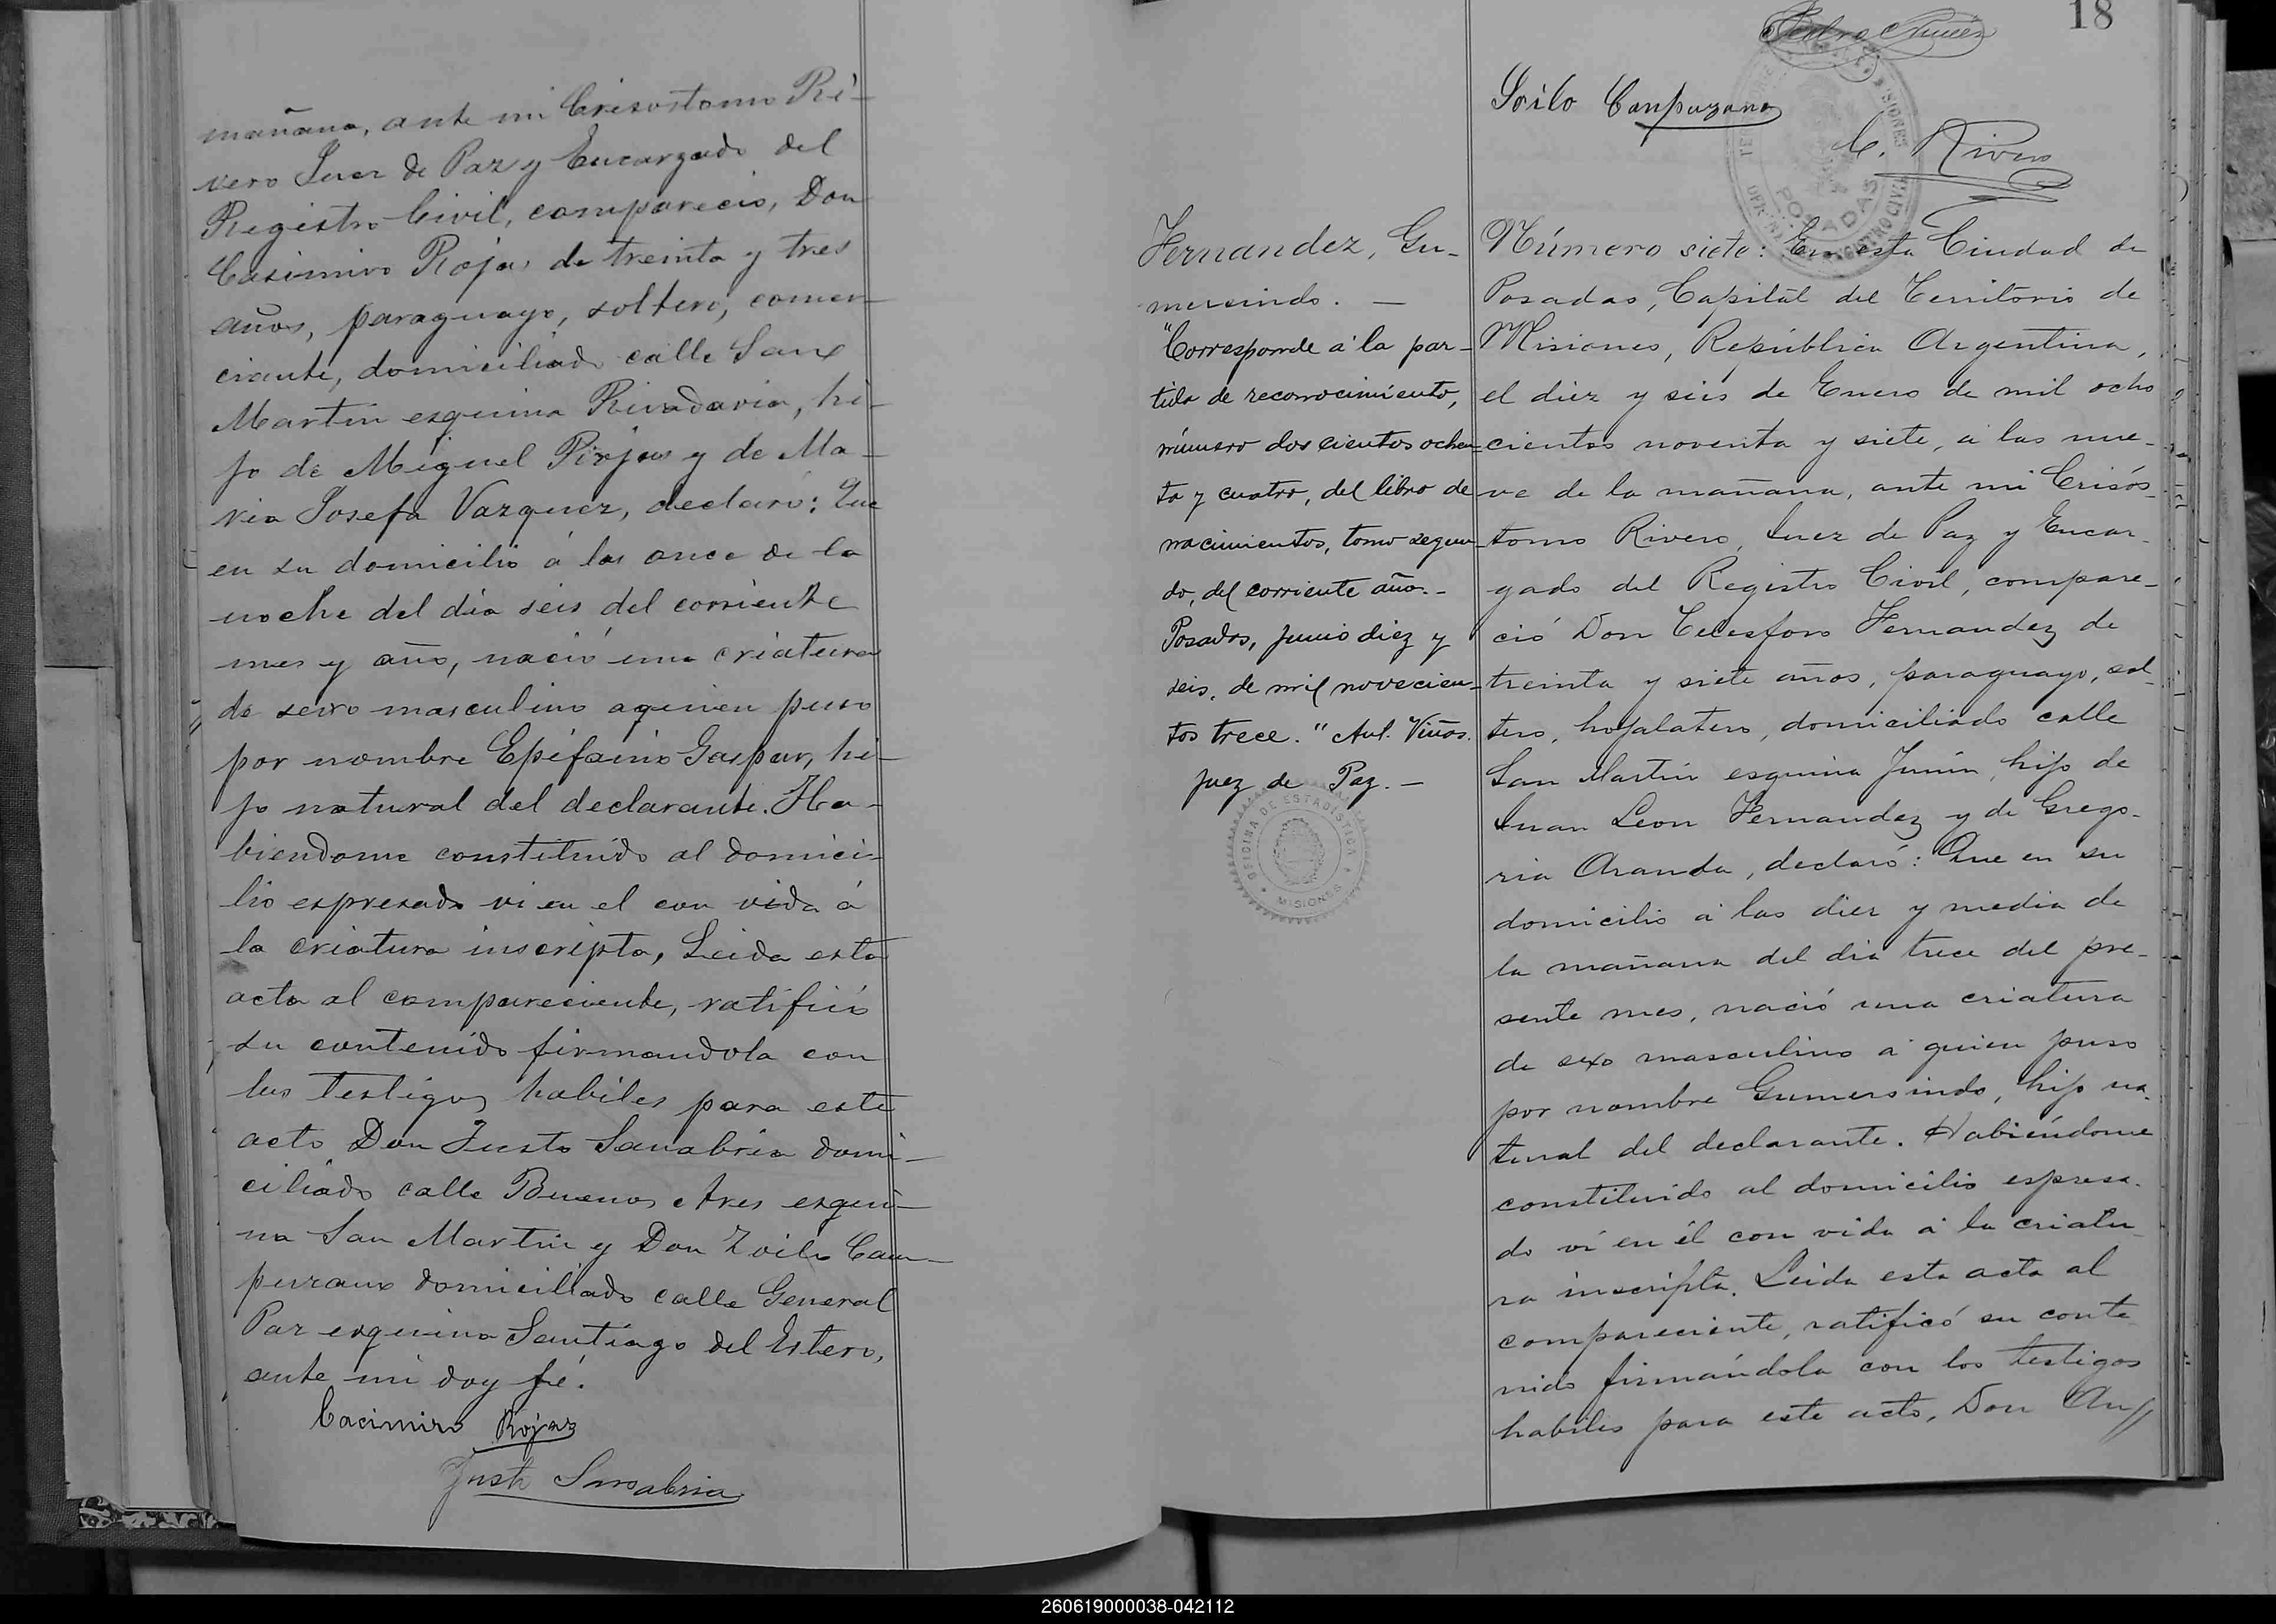 mañana, ante mi Crisostomo Ri-
vero Juez de Paz y Encargado del
Registro Civil, comparecio, Don
Casimiro Rojas de treinta y tres
años, paraguayo, soltero, comer-
ciante, domiciliado calle San
Martin esquina Rivadavia, hi-
jo de Miguel Rojas y de Ma-
ria Josefa Vazquez, declaró: Que
en su domicilio á las once de la
noche del dia seis del corriente
mes y año, nació una criatura
de sexo masculino a quien puso
por nombre Epifanio Gaspar, hi-
jo natural del declarante. Ha-
biendome constituido al domici-
lio espresado vi en el con vida á
la criatura inscripta, Leida esta
acta al compareciente, ratificó
su contenido firmandola con
los testigos habiles para este
acto Don Justo Sanabria domi-
ciliado calle Buenos Aires esqui-
na San Martin y Don Zoilo Cam-
puzano domiciliado calle General
Paz esquina Santiago del Estero,
ante mi doy fé.
Cacimiro Rojas
Justo Sanabria
18
Pedro Nuñez
Soilo Canpuzano
C. Rivero
POSADAS
Fernandez, Gu-
mersindo. —
"Corresponde á la par-
tida de reconocimiento,
número dos cientos ochen-
ta y cuatro, del libro de
nacimientos, tomo segun-
do, del corriente año.-
Posadas, Junio diez y
seis, de mil novecien-
tos trece." Ant. Viñas.
Juez de Paz. —
OFICINA DE ESTADISTICA
MISIONES
Número siete: En esta Ciudad de
Posadas, Capital del Territorio de
Misiones, República Argentina,
el diez y seis de Enero de mil ocho
cientos noventa y siete, á las nue-
ve de la mañana, ante mi Crisós-
tomo Rivero, Juez de Paz y Encar-
gado del Registro Civil, compare-
ció Don Telesforo Fernandez de
treinta y siete años, paraguayo, sol-
tero, hojalatero, domiciliado calle
San Martin esquina Junin, hijo de
Juan Leon Fernandez y de Grego-
ria Aranda, declaró: Que en su
domicilio á las diez y media de
la mañana del dia trece del pre-
sente mes, nació una criatura
de sexo masculino á quien puso
por nombre Gumersindo, hijo na-
tural del declarante. Habiéndome
constituido al domicilio espresa-
do ví en él con vida á la criatu-
ra inscripta. Leida esta acta al
compareciente, ratificó su conte
nido firmándola con los testigos
habiles para este acto, Don An
260619000038-042112